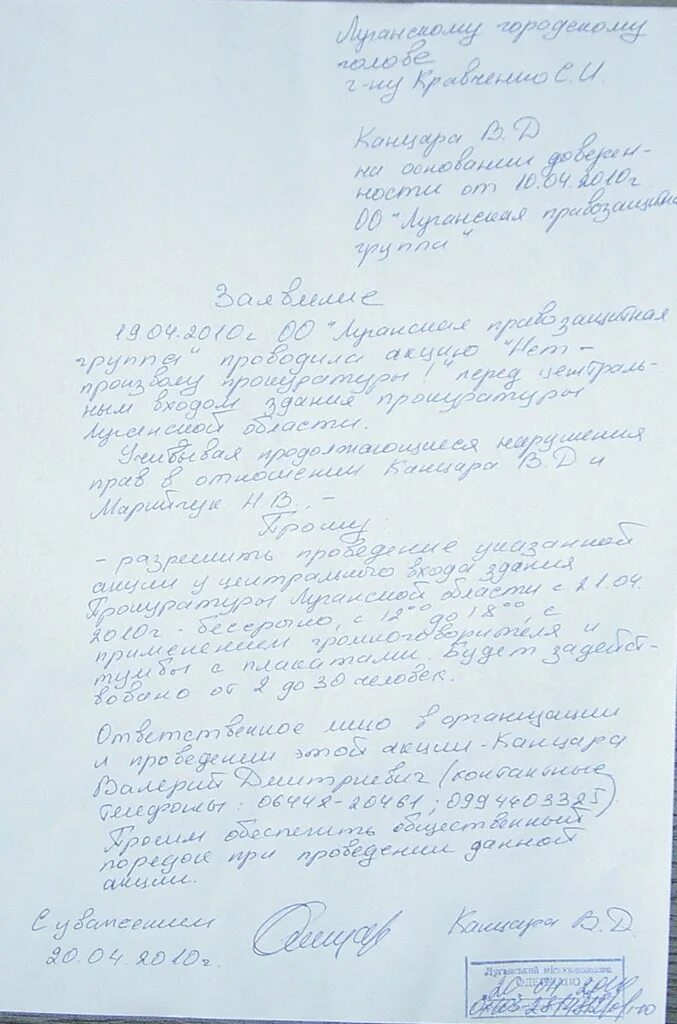 Луганскому городскому
голове
г-ну Кравченко С.И.
Канцара В.Д
на основании доверен-
ности от 10.04.2010г
ОО "Луганская правозащитная
группа"
Заявление
19.04.2010г ОО "Луганская правозащитная
группа" проводила акцию "Нет -
произволу прокуратуры!" перед централь-
ным входом здания прокуратуры
Луганской области.
Учитывая продолжающиеся нарушения
прав в отношении Канцара В.Д и
Марийчук Н.В. -
Прошу
- разрешить проведение указанной
акции у центрального входа здания
Прокуратуры Луганской области с 21.04.
2010г - бессрочно, с 12⁰⁰ до 18⁰⁰, с
применением громкоговорителя и
тумбы с плакатами. Будет задейст-
вовано от 2 до 30 человек.
Ответственное лицо в организации
и проведении этой акции - Канцара
Валерий Дмитриевич (контактные
телефоны: 06442-20461; 0994403325).
Просим обеспечить общественный
порядок при проведении данной
акции.
С уважением
Канцара В.Д.
20.04.2010г.
Луганський міськвиконком
ОДЕРЖАНО
20 04 2010